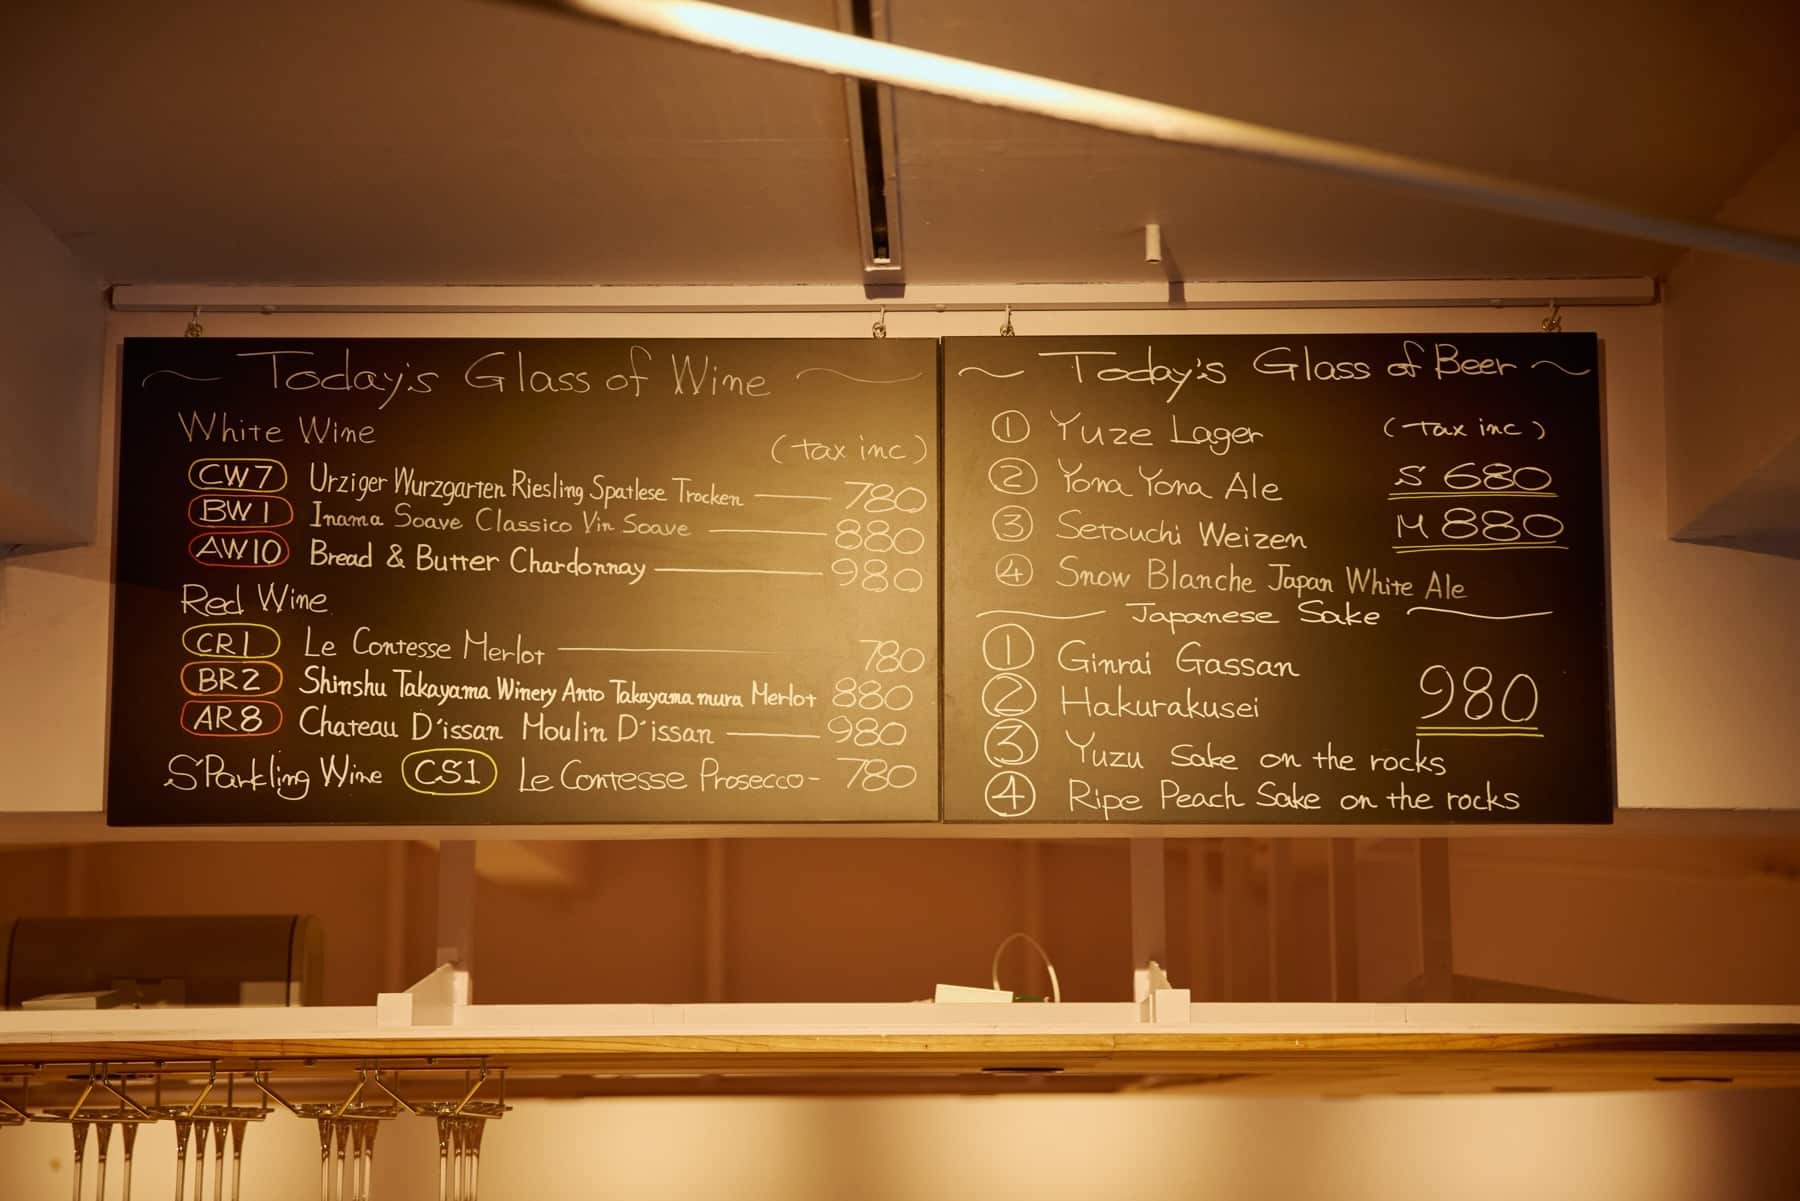 Today's Glass of Wine
White Wine
(tax inc)
CW7 Urziger Wurzgarten Riesling Spatlese Trocken 780
BW1 Inama Soave Classico Vin Soave 880
AW10 Bread & Butter Chardonnay 980
Red Wine
CR1 Le Contesse Merlot 780
BR2 Shinshu Takayama Winery Anto Takayama mura Merlot 880
AR8 Chateau D'issan Moulin D'issan 980
SParkling Wine CS1 Le Contesse Prosecco - 780
Today's Glass of Beer
① Yuze Lager (tax inc)
② Yona Yona Ale S 680
③ Setouchi Weizen M 880
④ Snow Blanche Japan White Ale
Japanese Sake
① Ginrai Gassan
② Hakurakusei 980
③ Yuzu Sake on the rocks
④ Ripe Peach Sake on the rocks